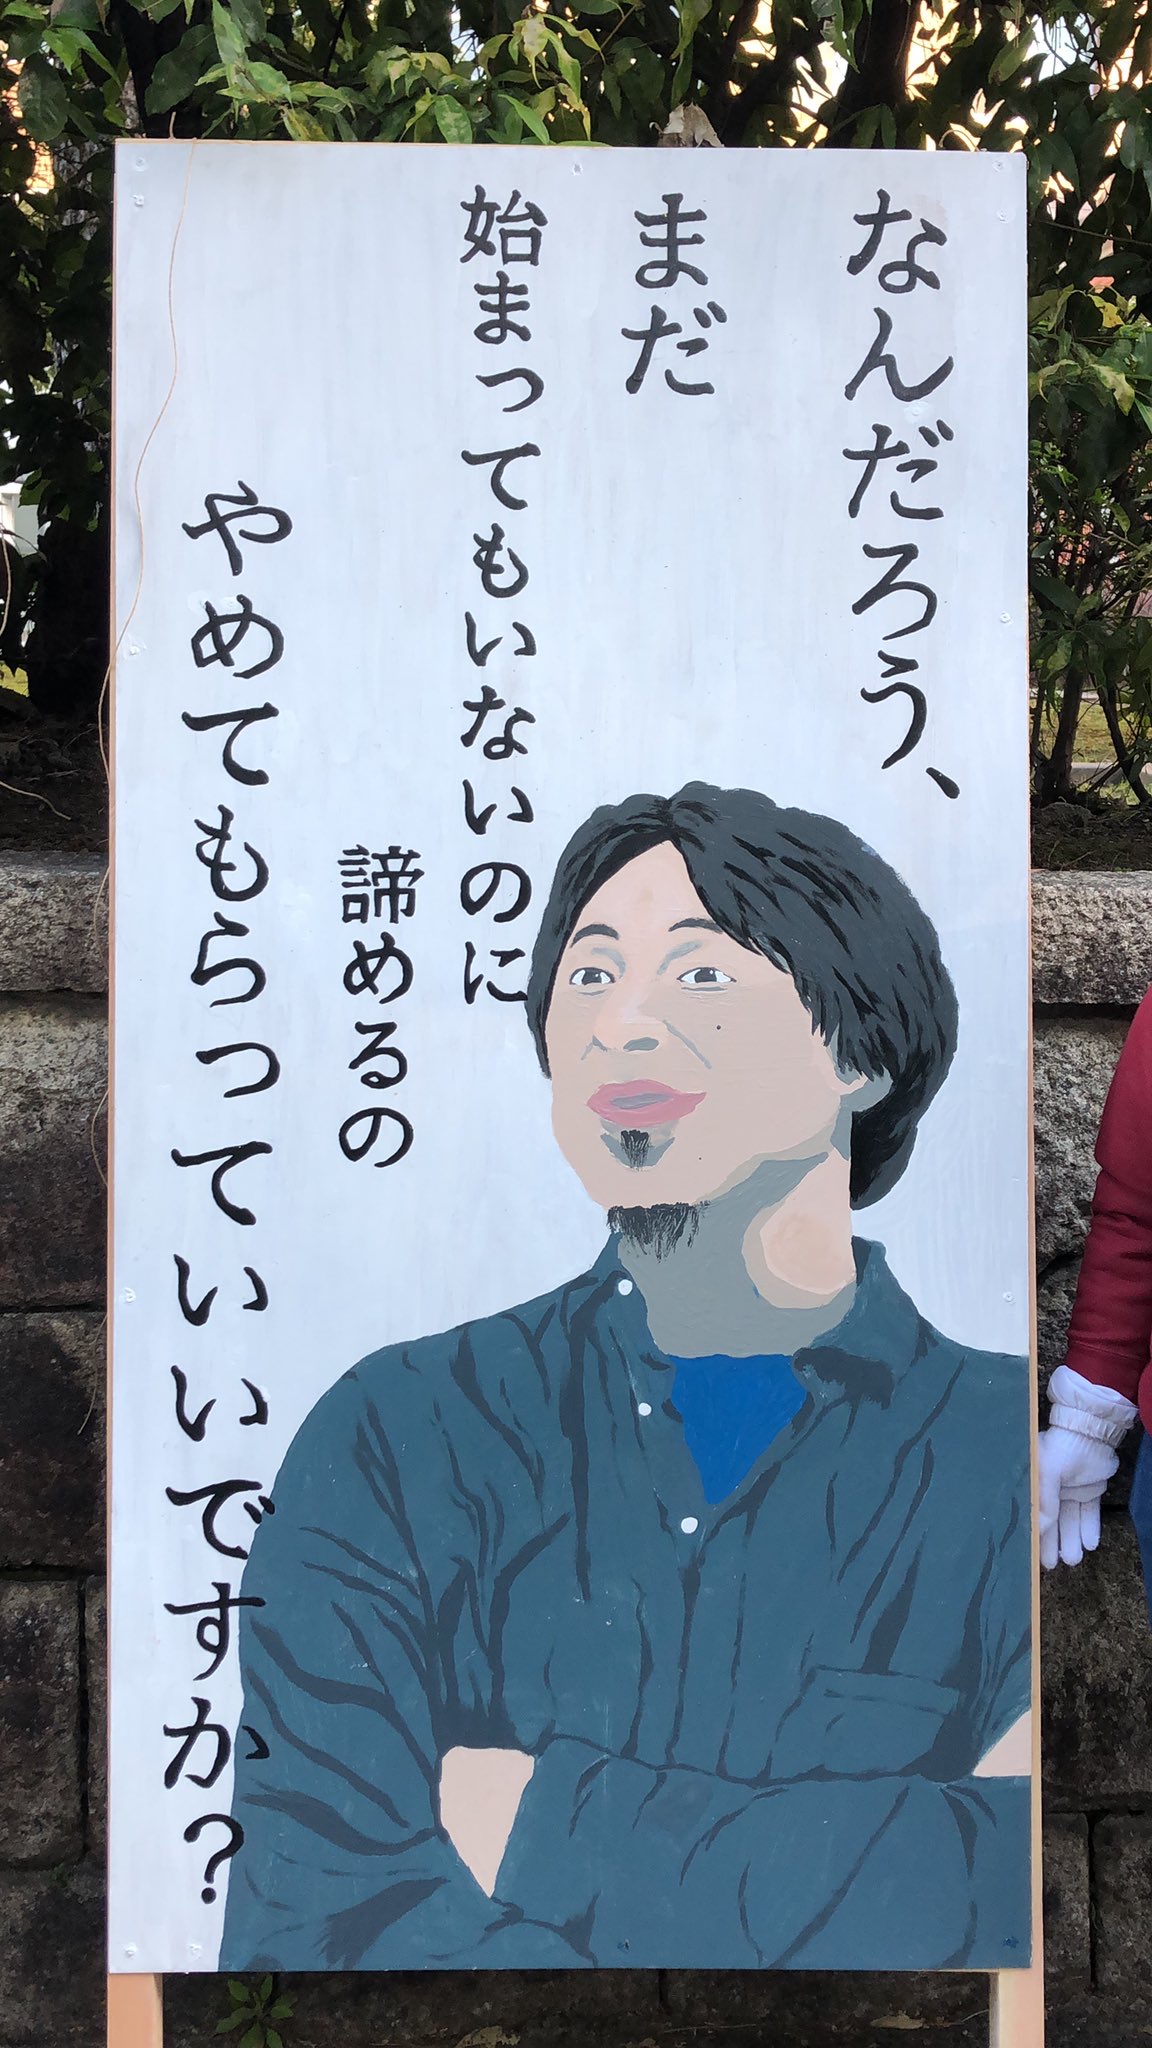 なんだろう、
まだ
始まってもいないのに
諦めるの
やめてもらっていいですか?